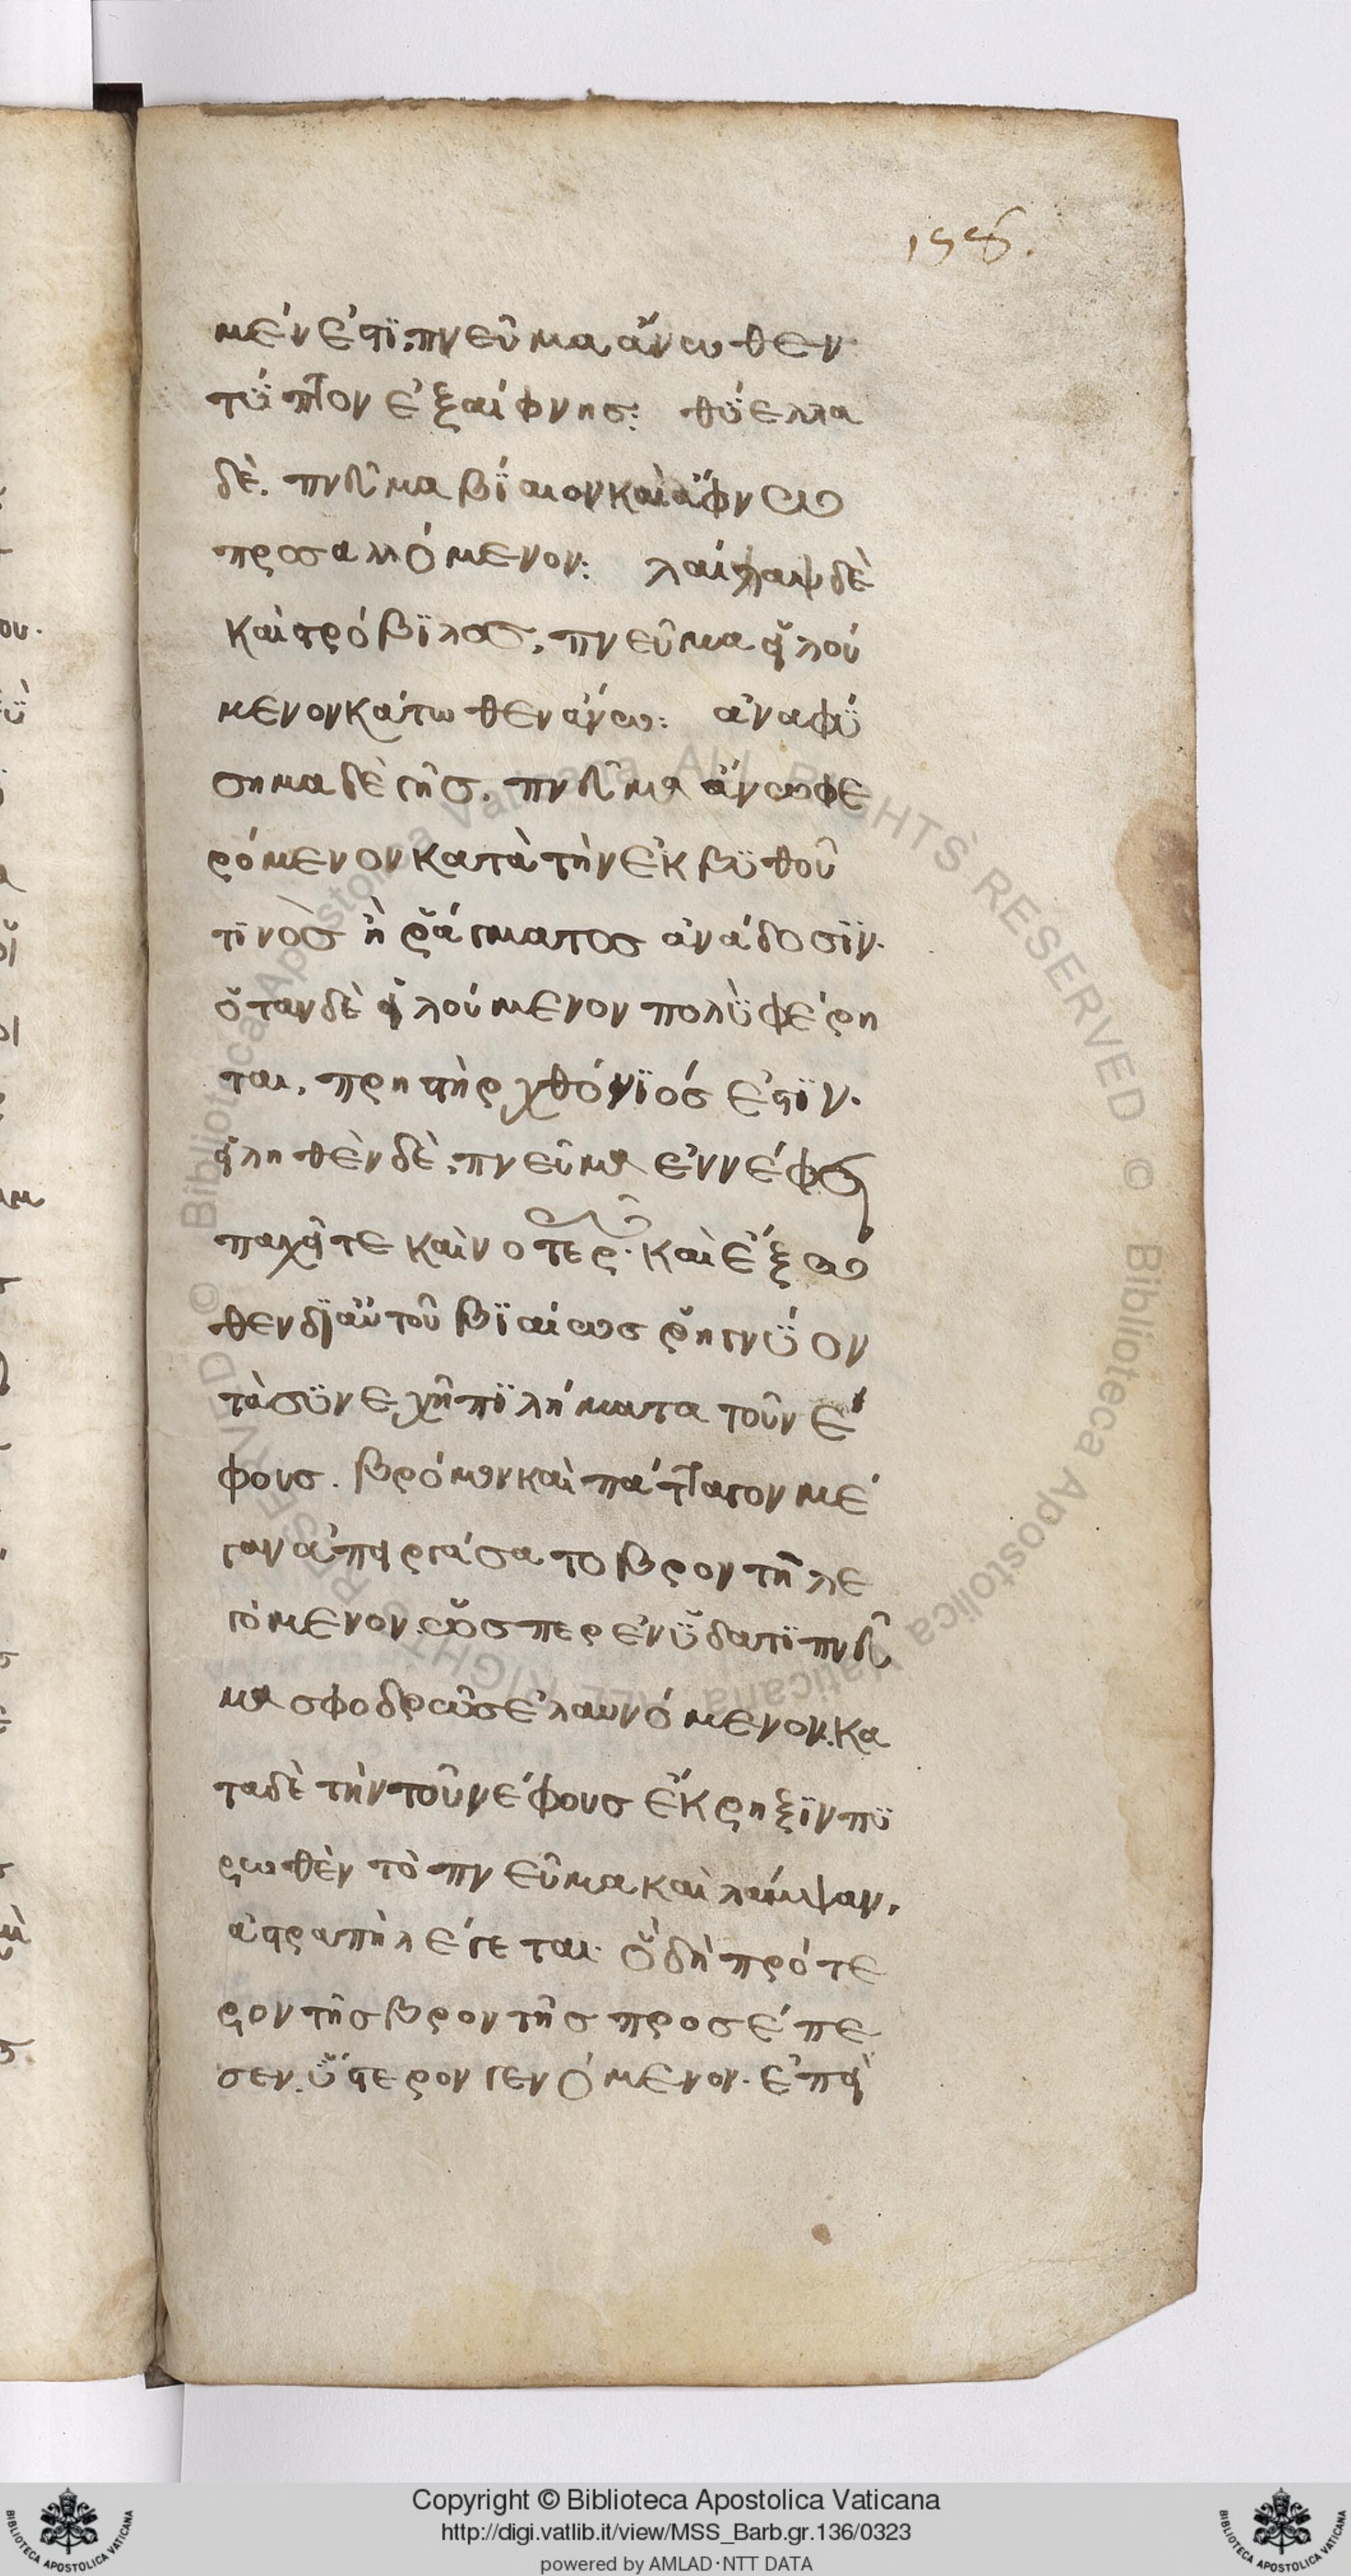 198.
μέν ἐστϊ. πνεῦμα ἄνωθεν
τΰπτον ἐξαίφνης: θΰελλα
δὲ. πνεῦμα βΐαιον καὶ ἄφνω
προσαλλόμενον: λαίλαψ δὲ
καὶ στρόβϊλος. πνεῦμα εἱλού
μενον κάτωθεν ἄνω: ἀναφΰ
σημα δὲ γῆς. πνεῦμα ἄνω φε
ρόμενον κατὰ τὴν ἐκ βϋθοῦ
τϊνὸς ἢ ῥάγματος ἀνάδοσϊν.
ὅταν δὲ εἱλούμενον πολὺ φέρη
ται. πρηστὴρ χθόνϊός ἐστϊν.
εἱληθὲν δὲ. πνεῦμα ἐν νέφει
παχεῖ τε καὶ νοτερῶ. καὶ ἔξω
θεν δϊ αὐτοῦ βϊαίως ῥηγνΰον
τὰ σϋνεχῆ πϊλήματα τοῦ νέ
φους. βρόμον καὶ πάταγον μέ
γαν ἀπειργάσατο βροντὴ λε
γόμενον. ὥσπερ ἐν ὕδατϊ πνεῦ
μα σφοδρῶς ἐλαυνόμενον. κα
τὰ δὲ τὴν τοῦ νέφους ἔκρηξϊν πϋ
ρωθὲν τὸ πνεῦμα καὶ λάμψαν.
ἀστραπὴ λέγεται. ὃ δὴ πρότε
ρον τῆς βροντῆς προσέπε
σεν. ὕστερον γενόμενον. ἐπεὶ
Copyright © Biblioteca Apostolica Vaticana
http://digi.vatlib.it/view/MSS_Barb.gr.136/0323
powered by AMLAD·NTT DATA